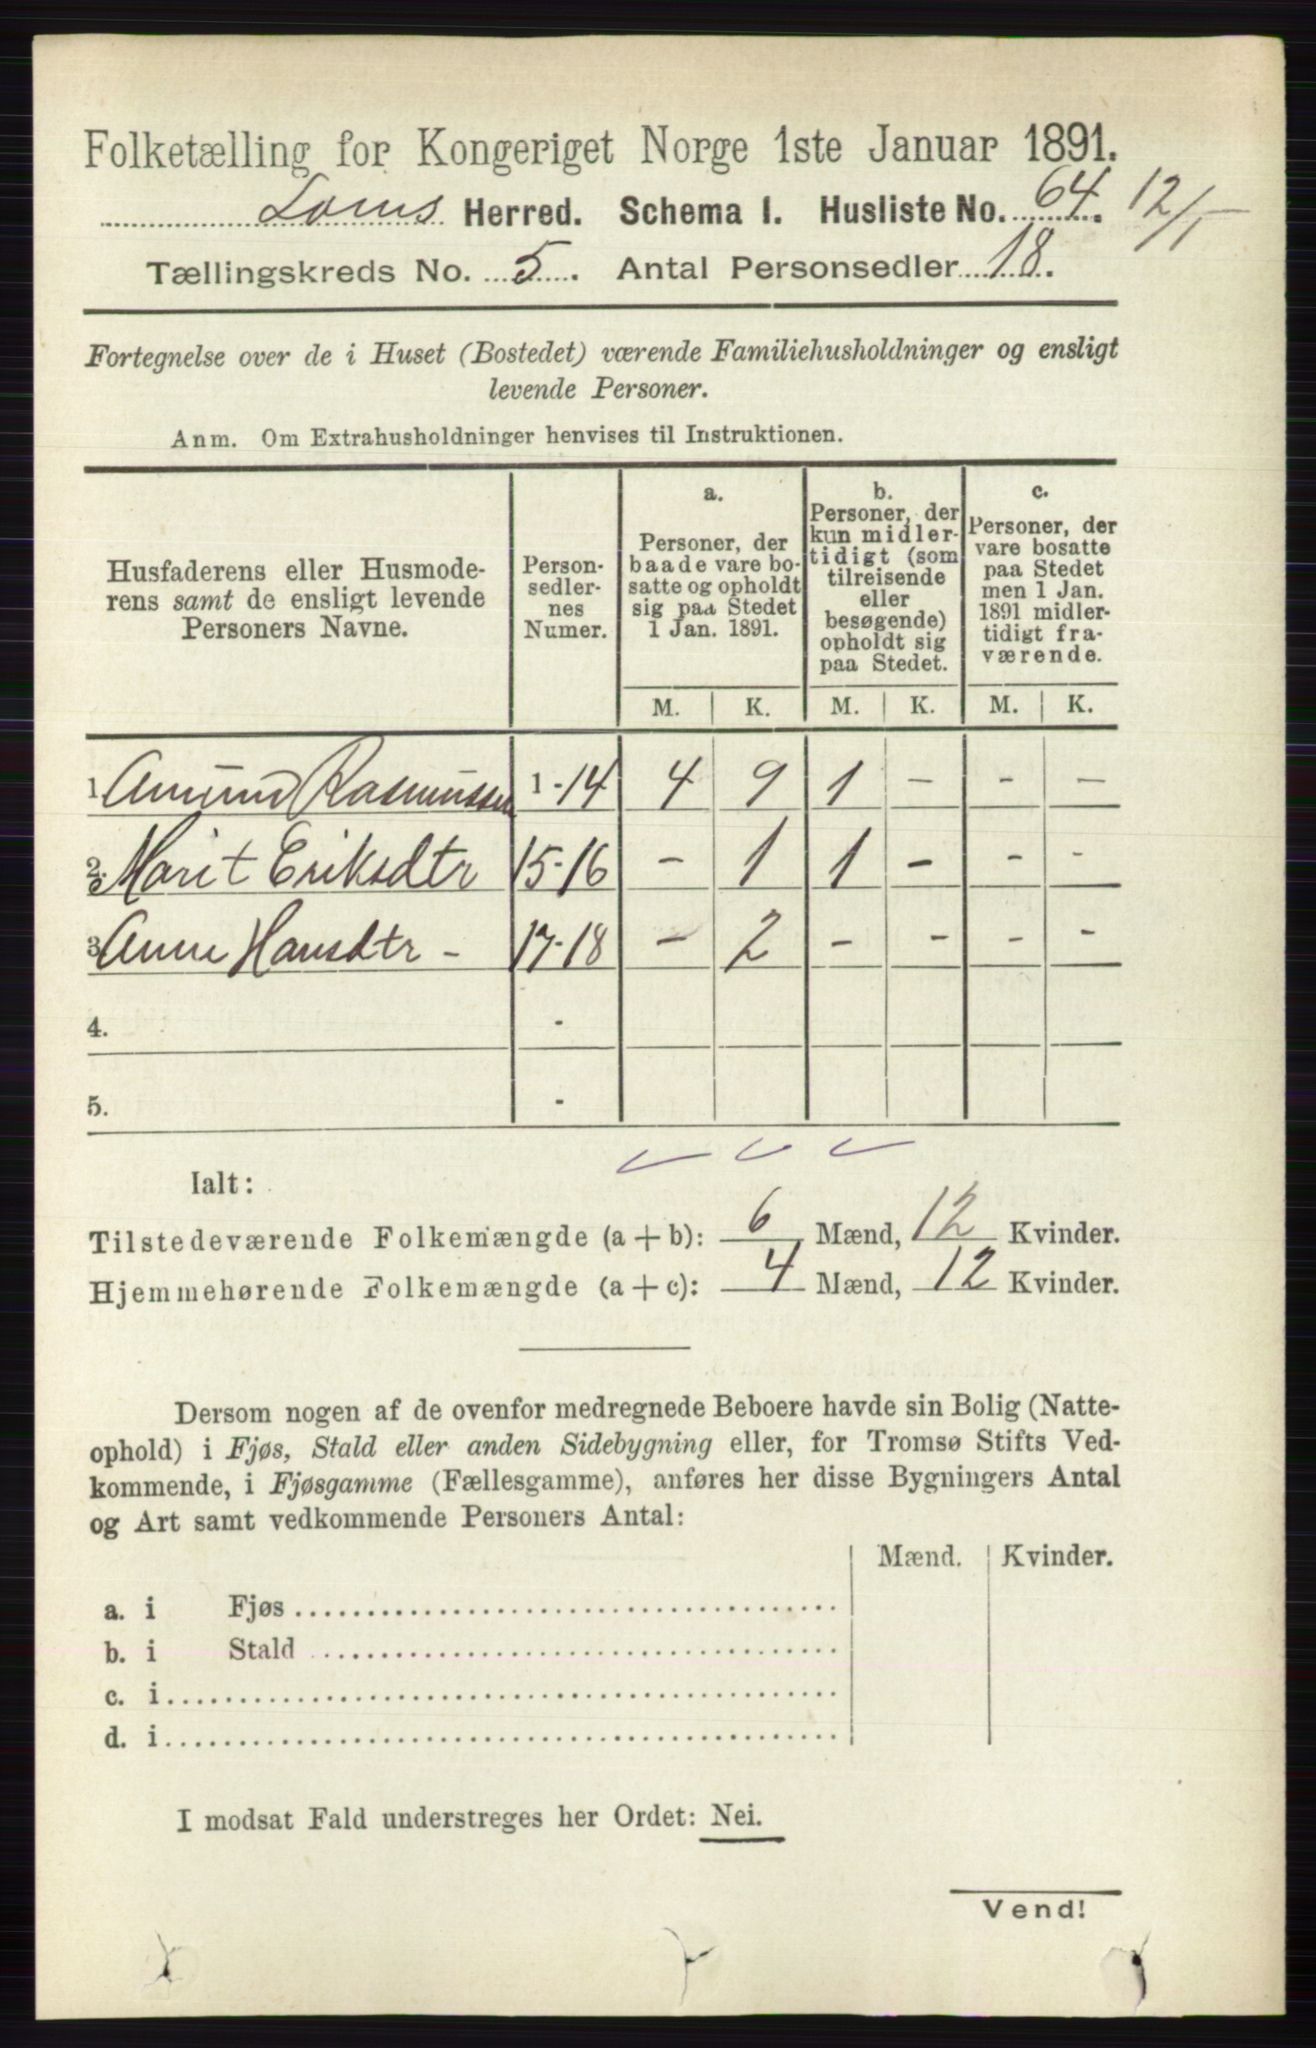 Folketælling for Kongeriget Norge 1ste Januar 1891.
Loms Herred. Schema I. Husliste No. 64. 12/1
Tællingskreds No. 5. Antal Personsedler 18.
Fortegnelse over de i Huset (Bostedet) værende Familiehusholdninger og ensligt
levende Personer.
Anm. Om Extrahusholdninger henvises til Instruktionen.
Husfaderens eller Husmode-
rens samt de ensligt levende
Personers Navne.
Person-
sedler-
nes
Numer.
a.
Personer, der
baade vare bo-
satte og opholdt
sig paa Stedet
1 Jan. 1891.
b.
Personer, der
kun midler-
tidigt (som
tilreisende
eller
besøgende)
opholdt sig
paa Stedet.
c.
Personer, der
vare bosatte
paa Stedet
men 1 Jan.
1891 midler-
tidigt fra-
værende.
M. K. M. K. M. K.
1 Amund Rasmussen 1-14 4 9 1 - - -
2. Marit Eriksdtr 15-16 - 1 1 - - -
3 Anne Hansdtr - 17-18 - 2 - - - -
4. -
5. -
Ialt:
Tilstedeværende Folkemængde (a + b): 6 Mænd, 12 Kvinder.
Hjemmehørende Folkemængde (a + c): 4 Mænd, 12 Kvinder.
Dersom nogen af de ovenfor medregnede Beboere havde sin Bolig (Natte-
ophold) i Fjøs, Stald eller anden Sidebygning eller, for Tromsø Stifts Ved-
kommende, i Fjøsgamme (Fællesgamme), anføres her disse Bygningers Antal
og Art samt vedkommende Personers Antal:
Mænd. Kvinder.
a. i Fjøs
b. i Stald
c. i
d. i
I modsat Fald understreges her Ordet: Nei.
Vend!